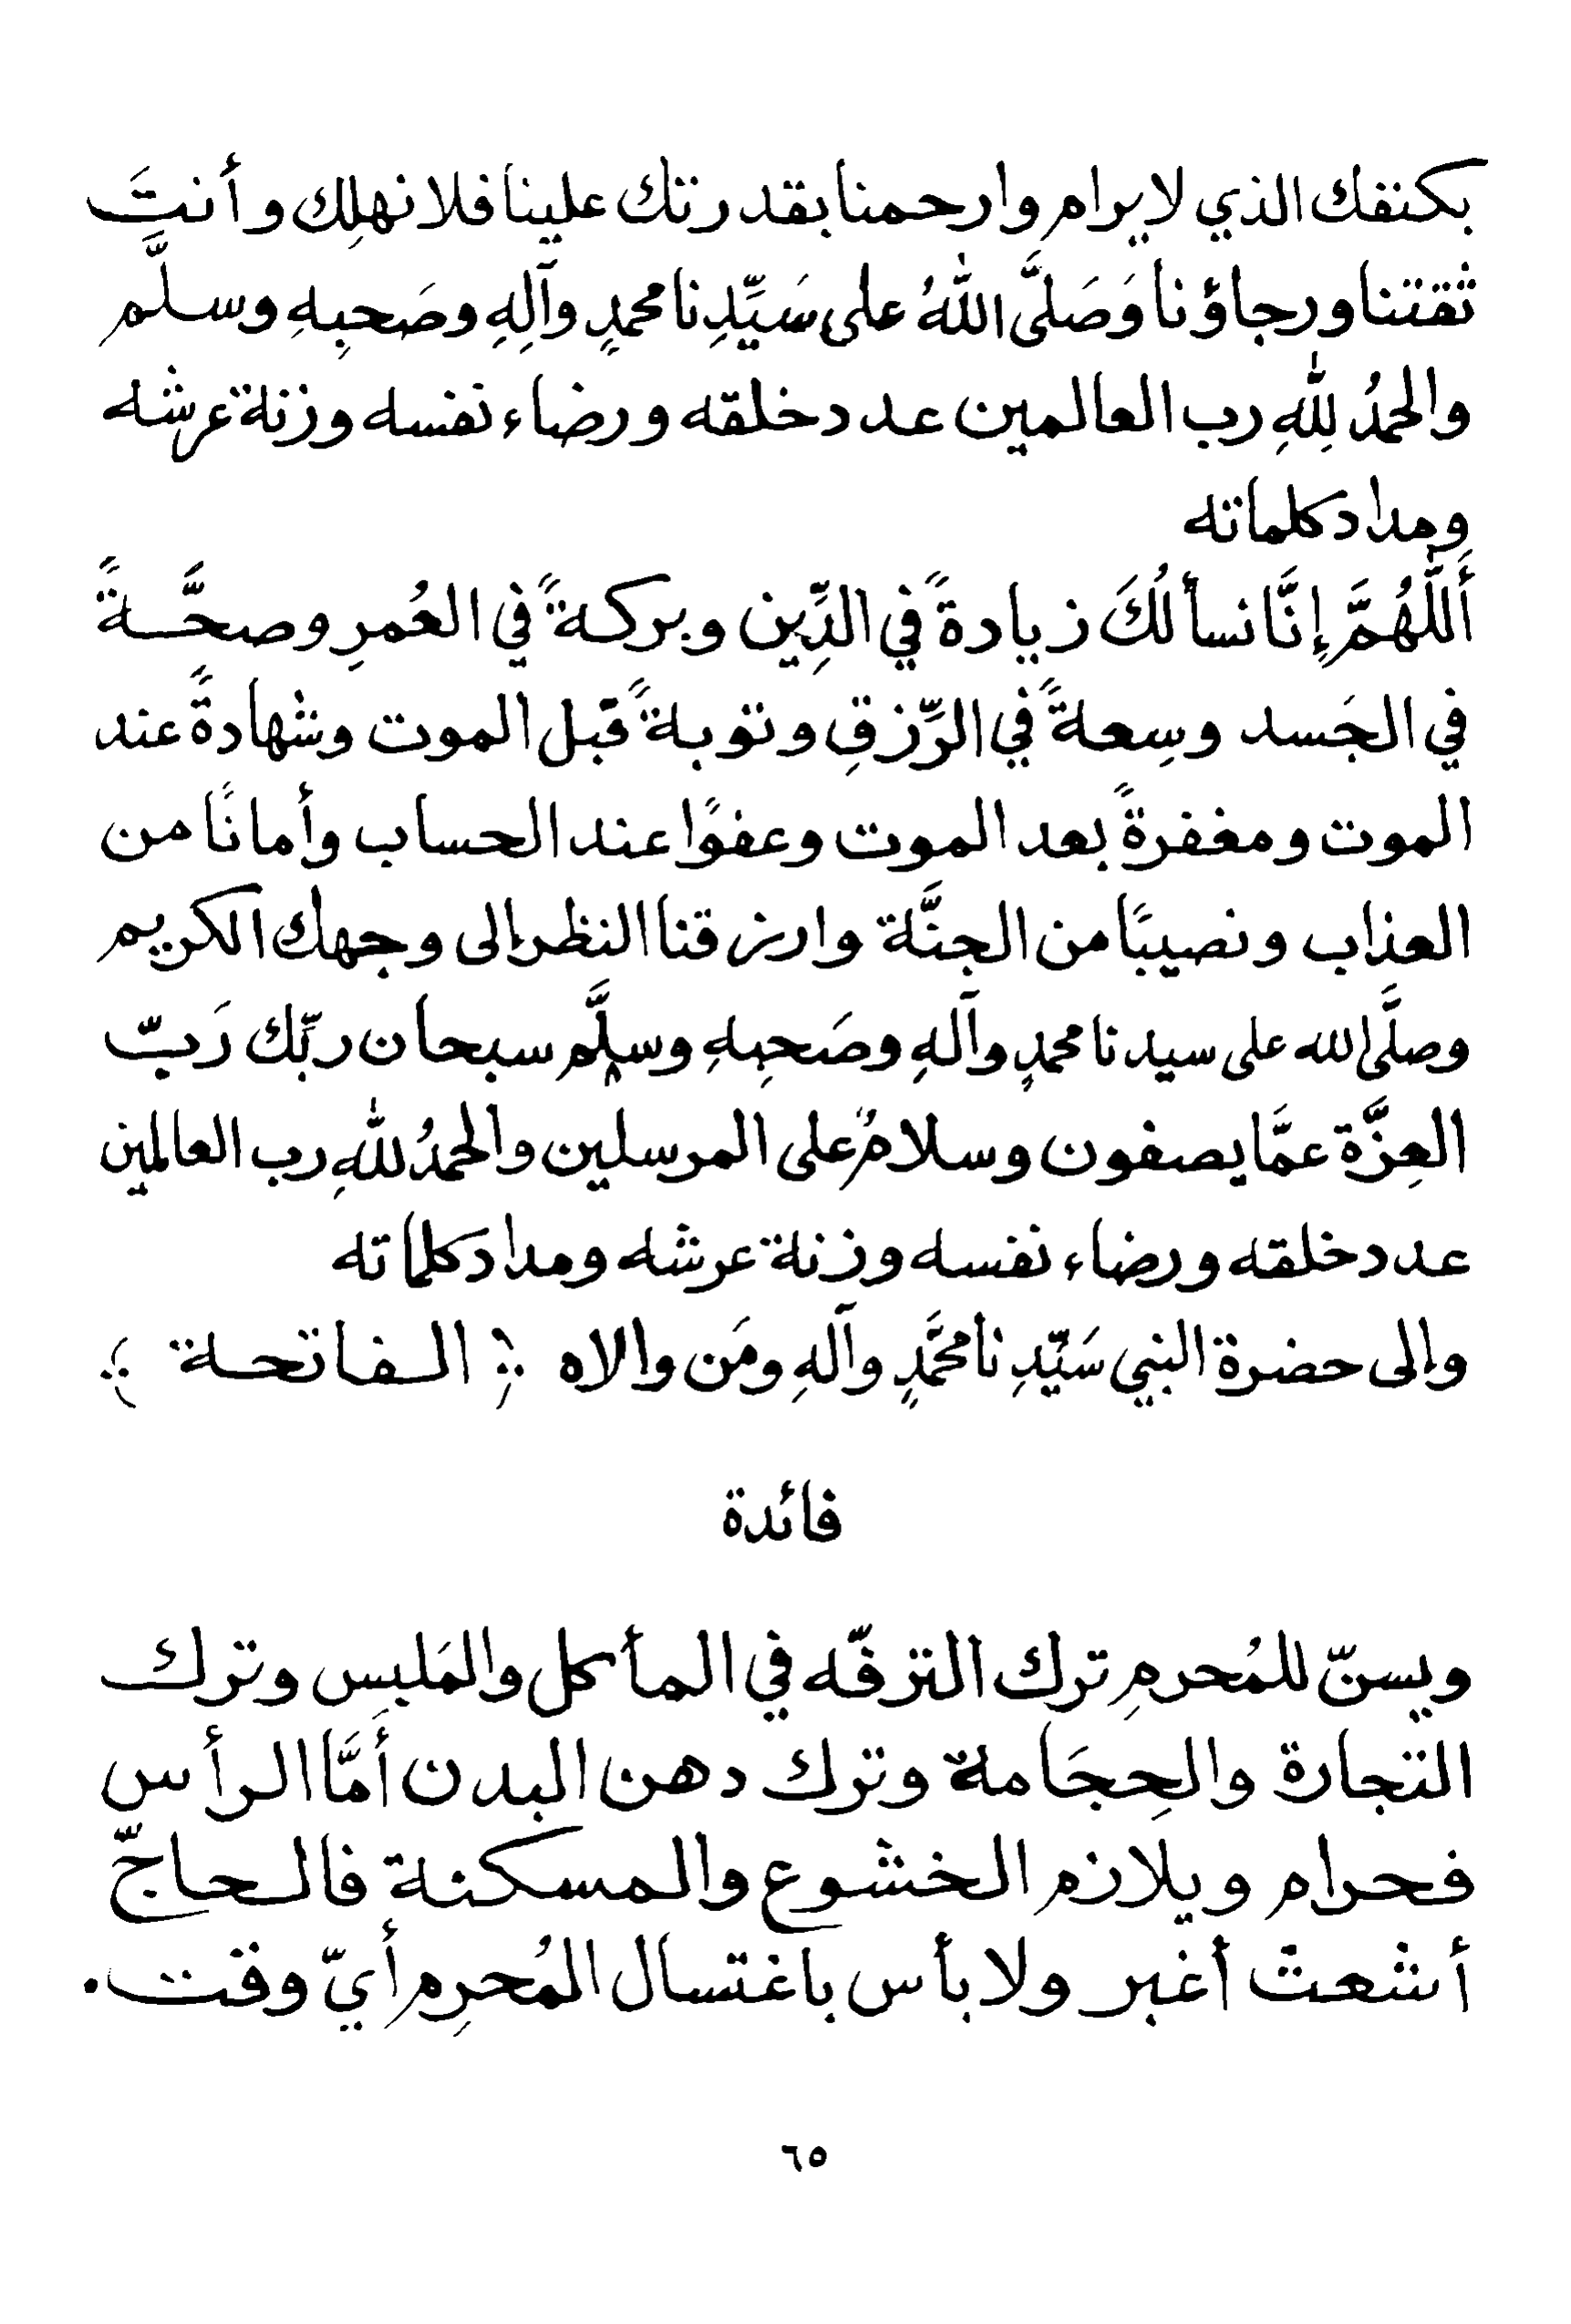 بكنفك الذي لا يرام وارحمنا بقدرتك علينا فلا نهلِك وأنتَ
ثقتنا ورجاؤنا وَصَلَّى اللهُ على سَيِّدِنا محمدٍ وآلِهِ وصَحبِهِ وسلَّم
والحمدُ لِلّٰهِ رب العالمين عدد خلقه ورضاء نفسه وزنة عرشه
ومداد كلماته
أَللَّهُمَّ إِنَّا نسألُكَ زيادةً في الدِّين وبركةً في العُمرِ وصحَّةً
في الجَسد وسِعةً في الرِّزقِ وتوبةً قبل الموت وشهادةً عند
الموت ومغفرةً بعد الموت وعفوًا عند الحساب وأمانًا من
العذاب ونصيبًا من الجنَّة وارزقنا النظر إلى وجهك الكريم
وصلَّى الله على سيدنا محمدٍ وآلهِ وصَحبِهِ وسلَّم سبحان ربّك رَبّ
العِزَّة عمَّا يصفون وسلامٌ على المرسلين والحمدُ للّٰهِ رب العالمين
عدد خلقه ورضاء نفسه وزنة عرشه ومدادَ كلماته
وإلى حضرة النبي سَيِّدِنا محمَّدٍ وآلهِ ومَن والاه ﴿ الفاتحة ﴾
فائدة
ويسنّ للمُحرمِ ترك الترفّه في المأكل والمَلبِس وترك
التجارة والحِجَامة وترك دهن البدن أمَّا الرأس
فحرام ويلازم الخشوع والمسكنة فالحاجّ
أشعث أغبر ولا بأس باغتسال المُحرِم أيّ وقت.
٦٥